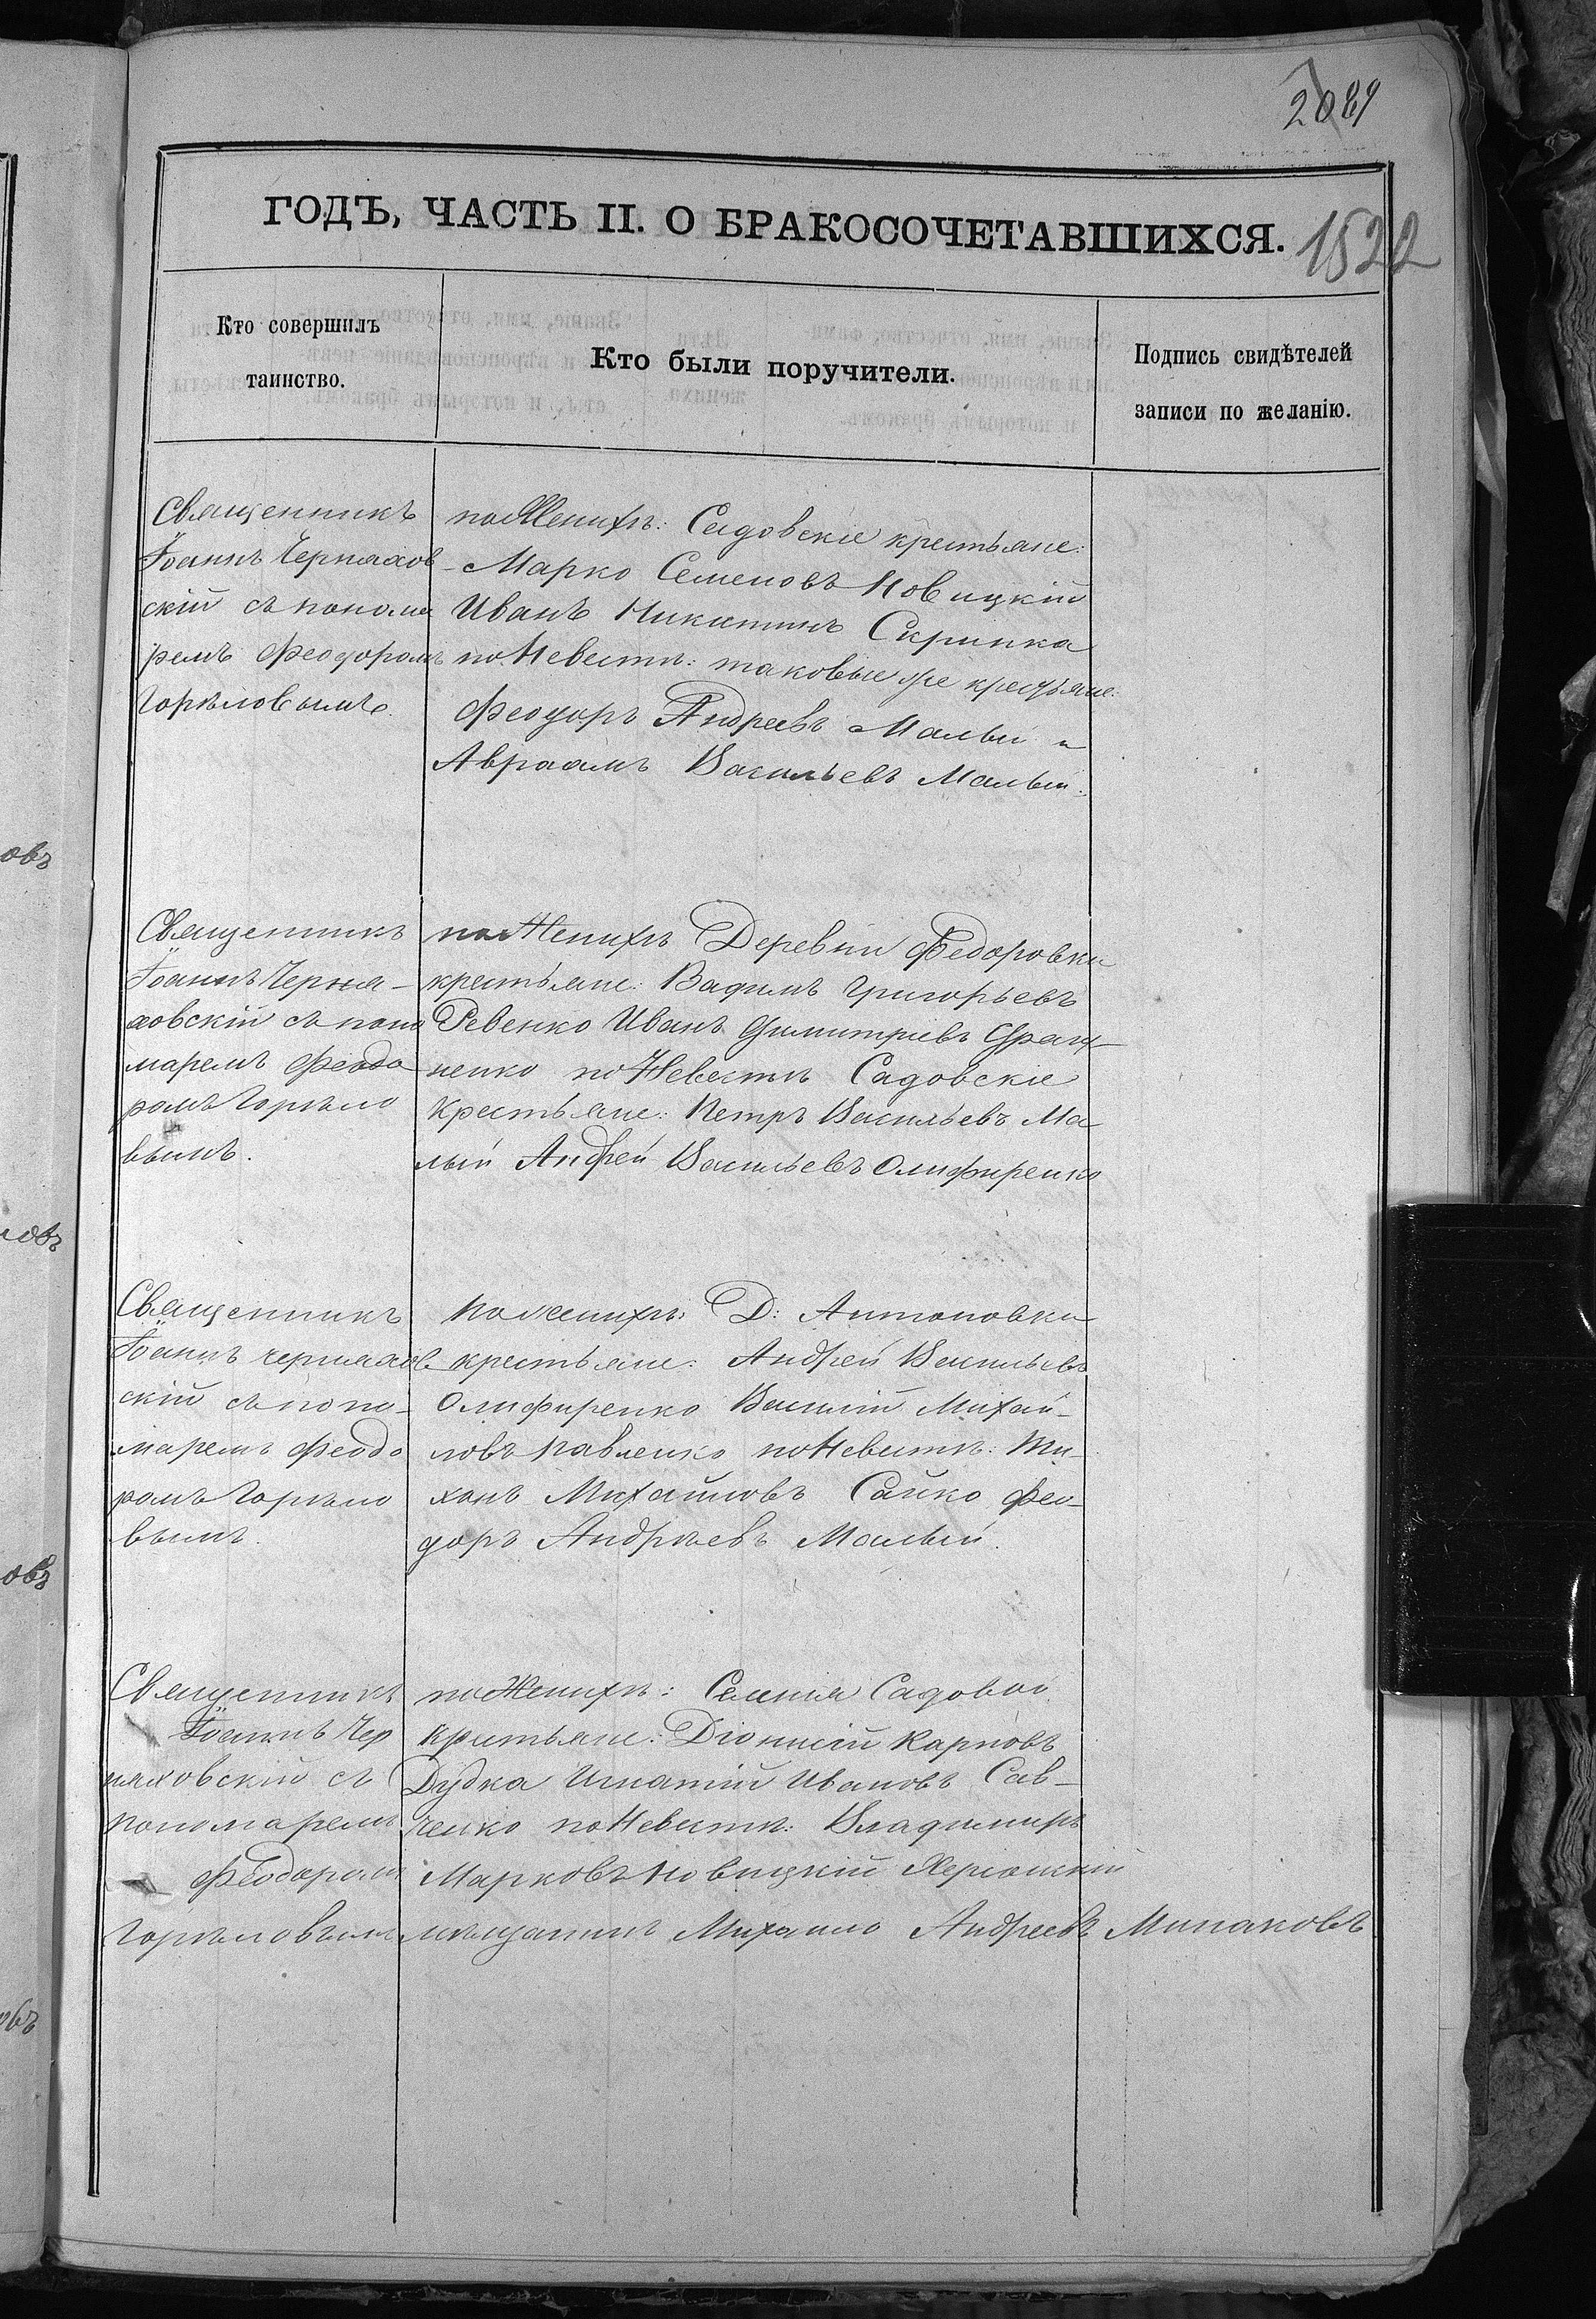 2089
ГОДЪ, ЧАСТЬ II. О БРАКОСОЧЕТАВШИХСЯ.
1522
Кто совершилъ
таинство.
Кто были поручители.
Подпись свидѣтелей
записи по желанію.
Священникъ
Іоаннъ Черняхов
скій съ понома
ремъ Феодоромъ
Горѣловымъ.
по Женихѣ: Садовскіе крестьяне:
Марко Семеновъ Новицкій
Иванъ Никитинъ Скрипка
по Невестѣ: таковые же крестьяне:
Феодоръ Андреевъ Малый и
Авраамъ Васильевъ Малый.
Священникъ
Іоаннъ Черня-
ховскій съ поно
маремъ Феодо
ромъ Горѣло
вымъ.
по Женихѣ Деревни Федоровки
крестьяне: Вадимъ Григорьевъ
Ревенко Иванъ Димитріевъ
ненко по Невестѣ Садовскіе
Крестьяне: Петръ Васильевъ Ма
лый Андрей Васильевъ Олифиренко
Священникъ
Іоаннъ Черняхов
скій съ поно-
маремъ Феодо
ромъ Горѣло
вымъ.
По женихѣ: Д: Антоновки
крестьяне: Андрей Васильевъ
Олифиренко Василій Михай-
ловъ Павленко по Невестѣ: Ти-
хонъ Михайловъ Сайко Фео-
доръ Андрѣевъ Малый.
Священникъ
Іоаннъ Чер
няховскій съ
пономаремъ
Феодоромъ
Горѣловымъ
по Женихѣ: Селенія Садовой
крестьяне: Діонисій Карповъ
Дудка Игнатій Ивановъ Сав-
ченко по Невестѣ: Владимиръ
Марковъ Новицкій Херсонскій
мѣщанинъ Михаило Андреевъ Минаковъ
овъ
ловъ
овъ
овъ